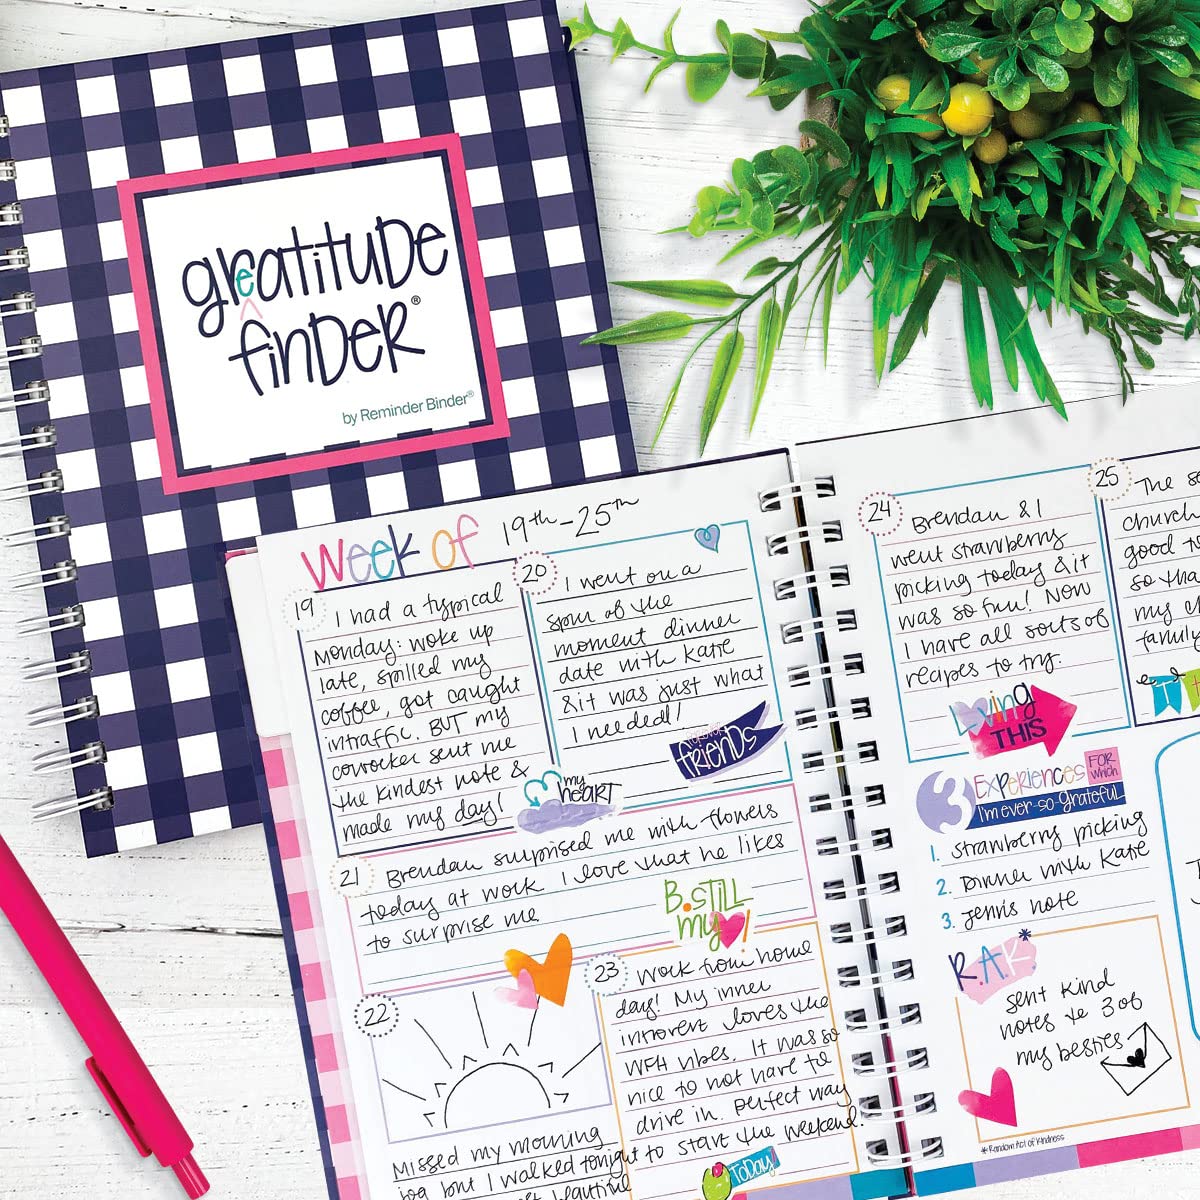 greatitude
finder®
by Reminder Binder®
Week of 19th-25th
19
I had a typical
Monday: woke up
late, spilled my
coffee, got caught
in traffic. BUT my
coworker sent me
the kindest note &
made my day!
20
I went on a
spur of the
moment dinner
date with Katie
& it was just what
I needed!
friends
my
heart
21
Brendan surprised me with flowers
today at work I love that he likes
to surprise me
B.STILL
my !
22
Missed my morning
jog but I walked tonight
beautiful
23
Work from home
day! My inner
introvert loves the
WFH vibes. It was so
nice to not have to
drive in. Perfect way
to start the weekend!
Today!
24
Brendan & I
went strawberry
picking today & it
was so fun! Now
I have all sorts of
recipes to try.
Loving
THIS
25
The
church
good
so tha
my
family
3 Experiences FOR which
I'm ever-so-grateful
1. strawberry picking
2. Dinner with Katie
3. Jenni's note
R.A.K*
sent kind
notes to 3 of
my besties
*Random Act of Kindness